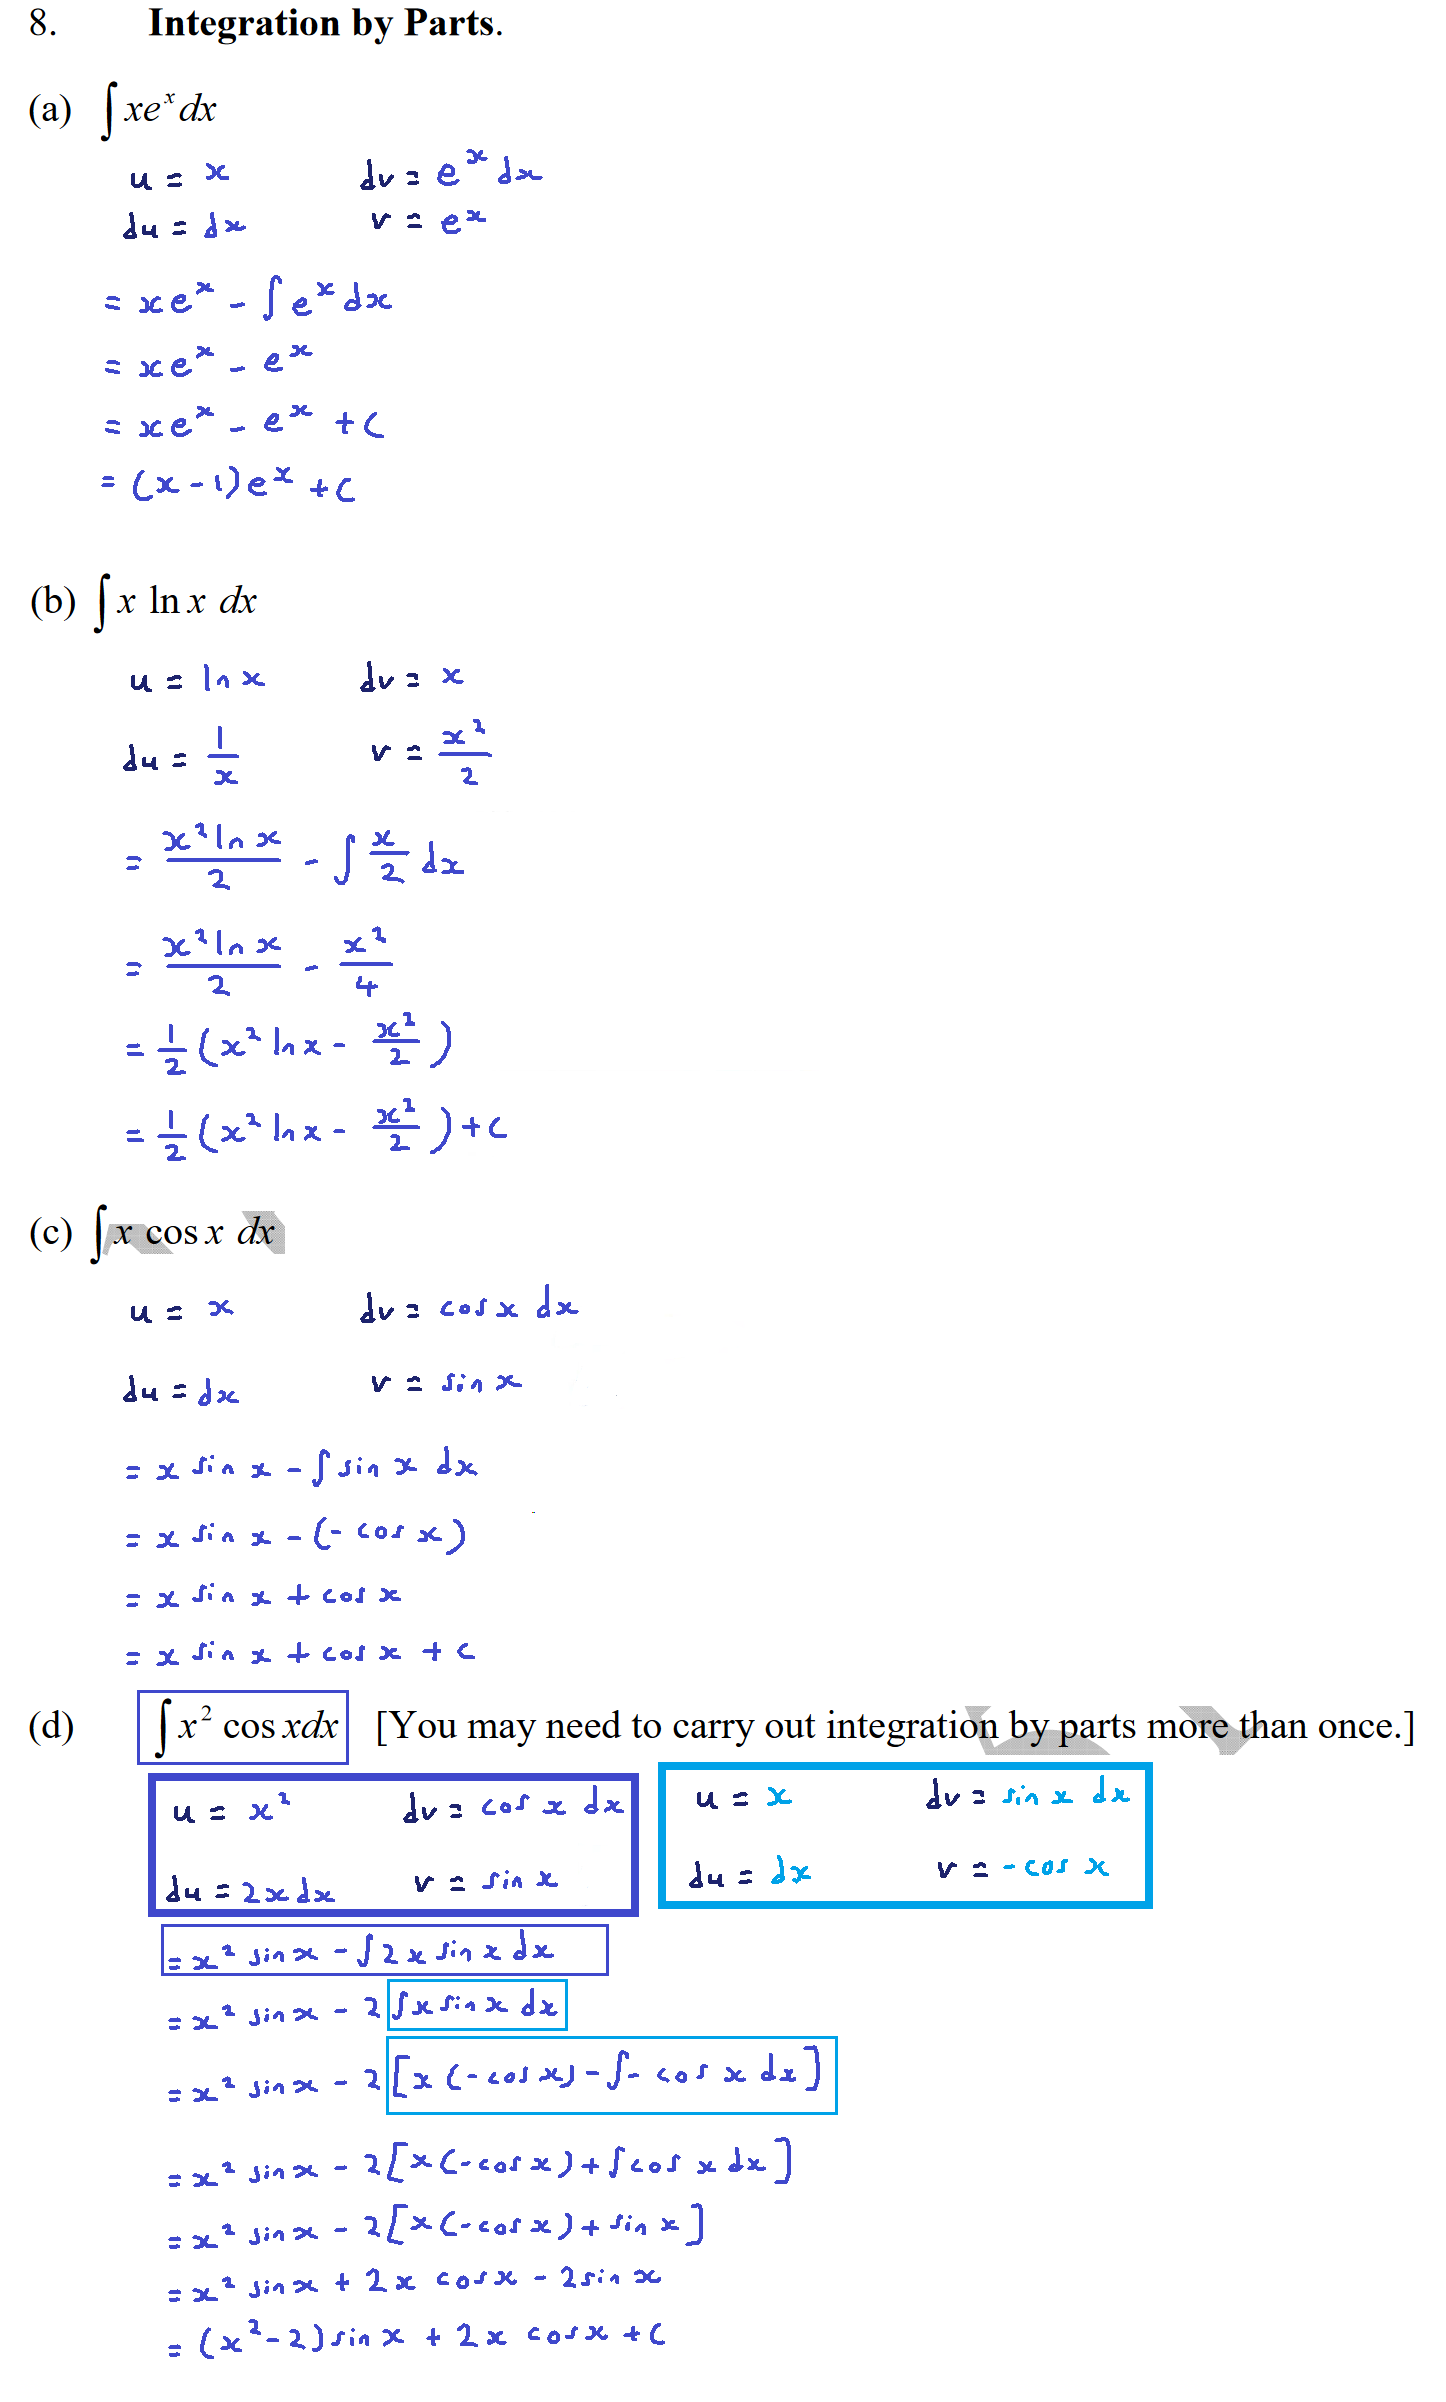 8. Integration by Parts.
(a) ∫ xeˣ dx
u = x dv = eˣ dx
du = dx v = eˣ
= xeˣ - ∫ eˣ dx
= xeˣ - eˣ
= xeˣ - eˣ + C
= (x - 1)eˣ + C
(b) ∫ x ln x dx
u = ln x dv = x
du = 1/x v = x²/2
= x² ln x / 2 - ∫ x/2 dx
= x² ln x / 2 - x²/4
= 1/2 (x² ln x - x²/2)
= 1/2 (x² ln x - x²/2) + C
(c) ∫ x cos x dx
u = x dv = cos x dx
du = dx v = sin x
= x sin x - ∫ sin x dx
= x sin x - (- cos x)
= x sin x + cos x
= x sin x + cos x + C
(d) ∫ x² cos xdx [You may need to carry out integration by parts more than once.]
u = x² dv = cos x dx u = x dv = sin x dx
du = 2x dx v = sin x du = dx v = - cos x
= x² sin x - ∫ 2x sin x dx
= x² sin x - 2 ∫ x sin x dx
= x² sin x - 2 [x (- cos x) - ∫ - cos x dx]
= x² sin x - 2 [x (- cos x) + ∫ cos x dx]
= x² sin x - 2 [x (- cos x) + sin x]
= x² sin x + 2x cos x - 2 sin x
= (x² - 2) sin x + 2x cos x + C